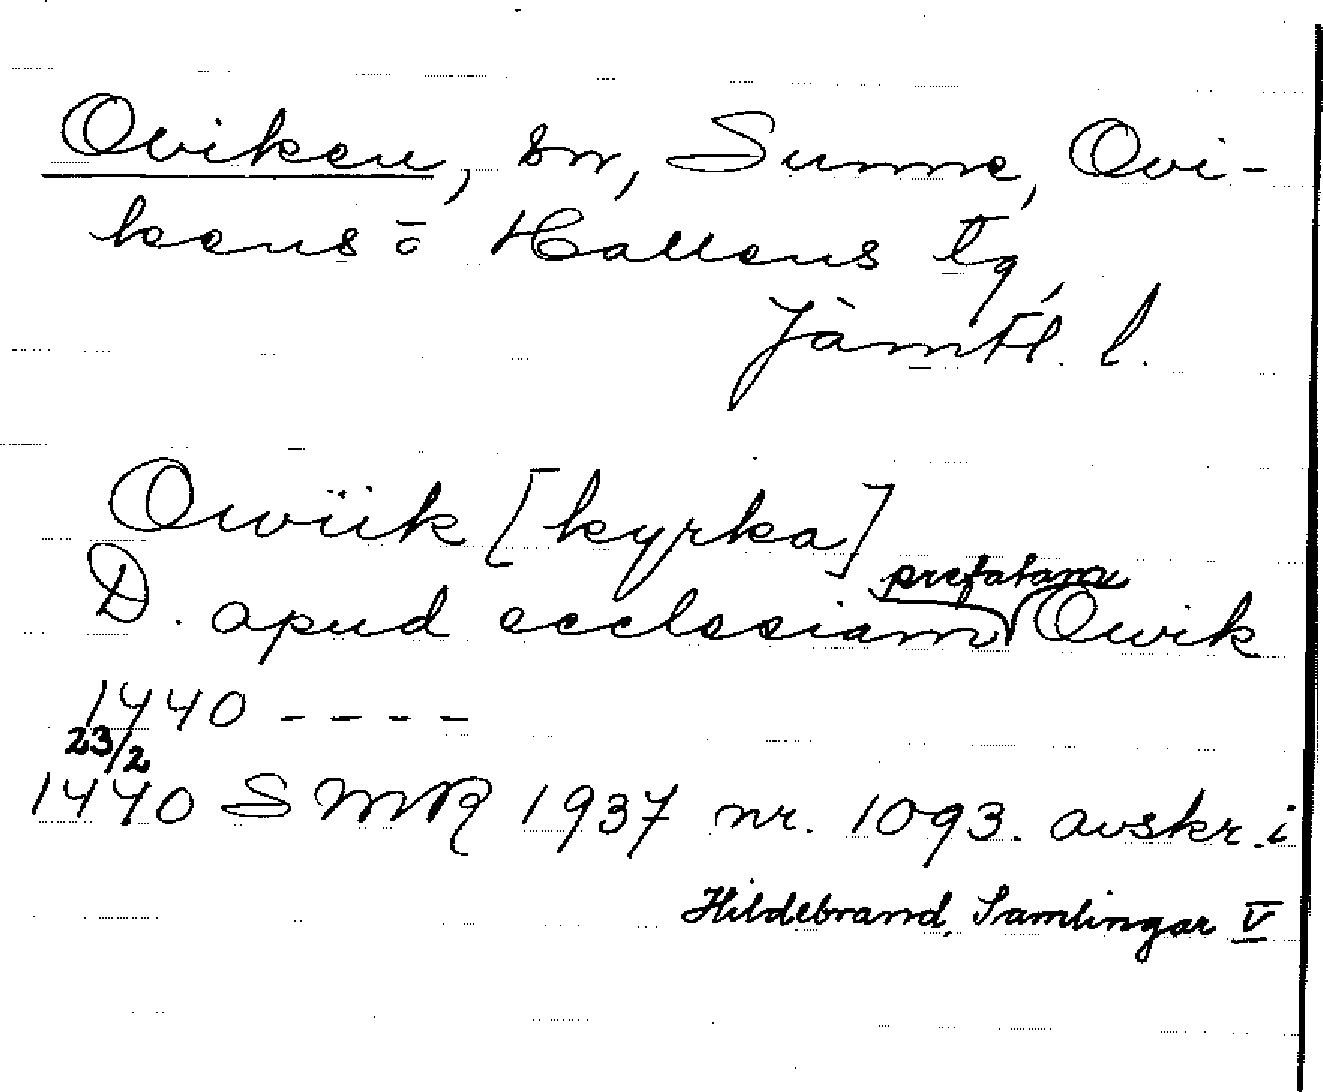 Oviken, sn, Sunne, Ovi-
kens ō Hallens tg,
Jämtl. l.
Owiik [kyrka]
D. apud ecclesiam prefatam Owik
1440 - - - -
23/2
1440 SMR 1937 nr. 1093. avskr. i
Hildebrand, Samlingar V